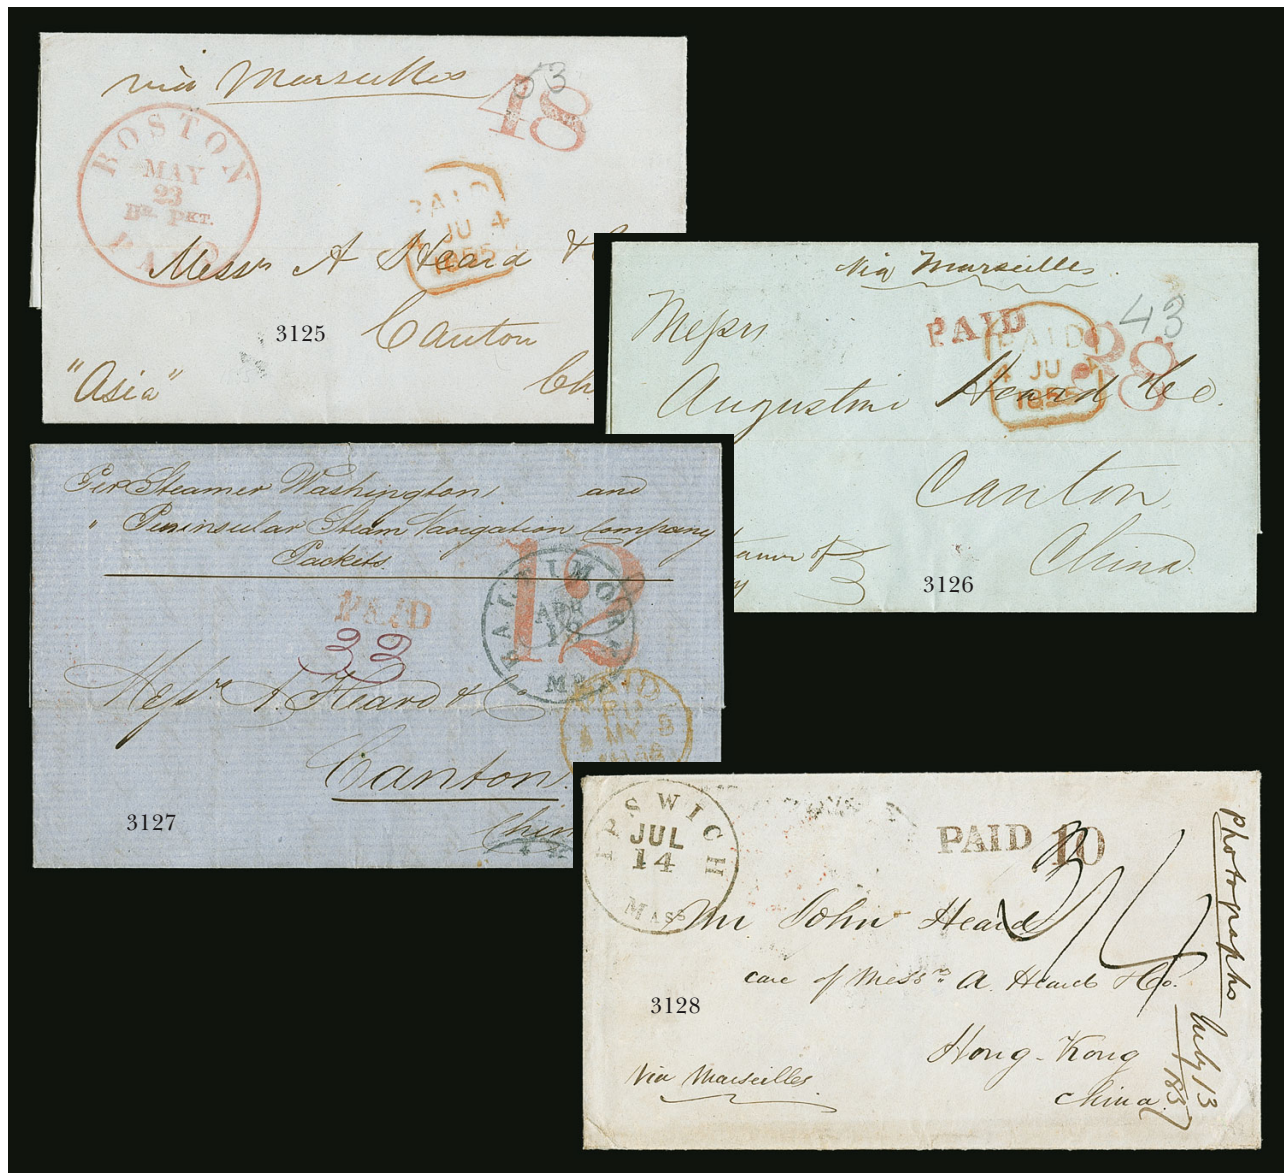 via Marseilles
53
48
BOSTON
MAY
23
BR. PKT.
PAID
PAID
4 JU 4
1855
Messrs A Heard & C
Canton
3125
"Asia"
Ch
via Marseilles
43
PAID
38
PAID
4 JU 4
185
Messrs
Augustine Heard & Co.
Canton
China
3126
Per Steamer Washington and
" Peninsular Steam Navigation Company
Packets
12
BALTIMORE
APR
MD
PAID
33
Messrs A. Heard & Co
PAID
MY 8
Canton
3127
Chin
IPSWICH
JUL
14
MASS
PAID 10
3/4
Mr John Heard
care of Messrs A. Heard & Co.
3128
Hong-Kong
China
Via Marseilles
Photographs
July 13
1857